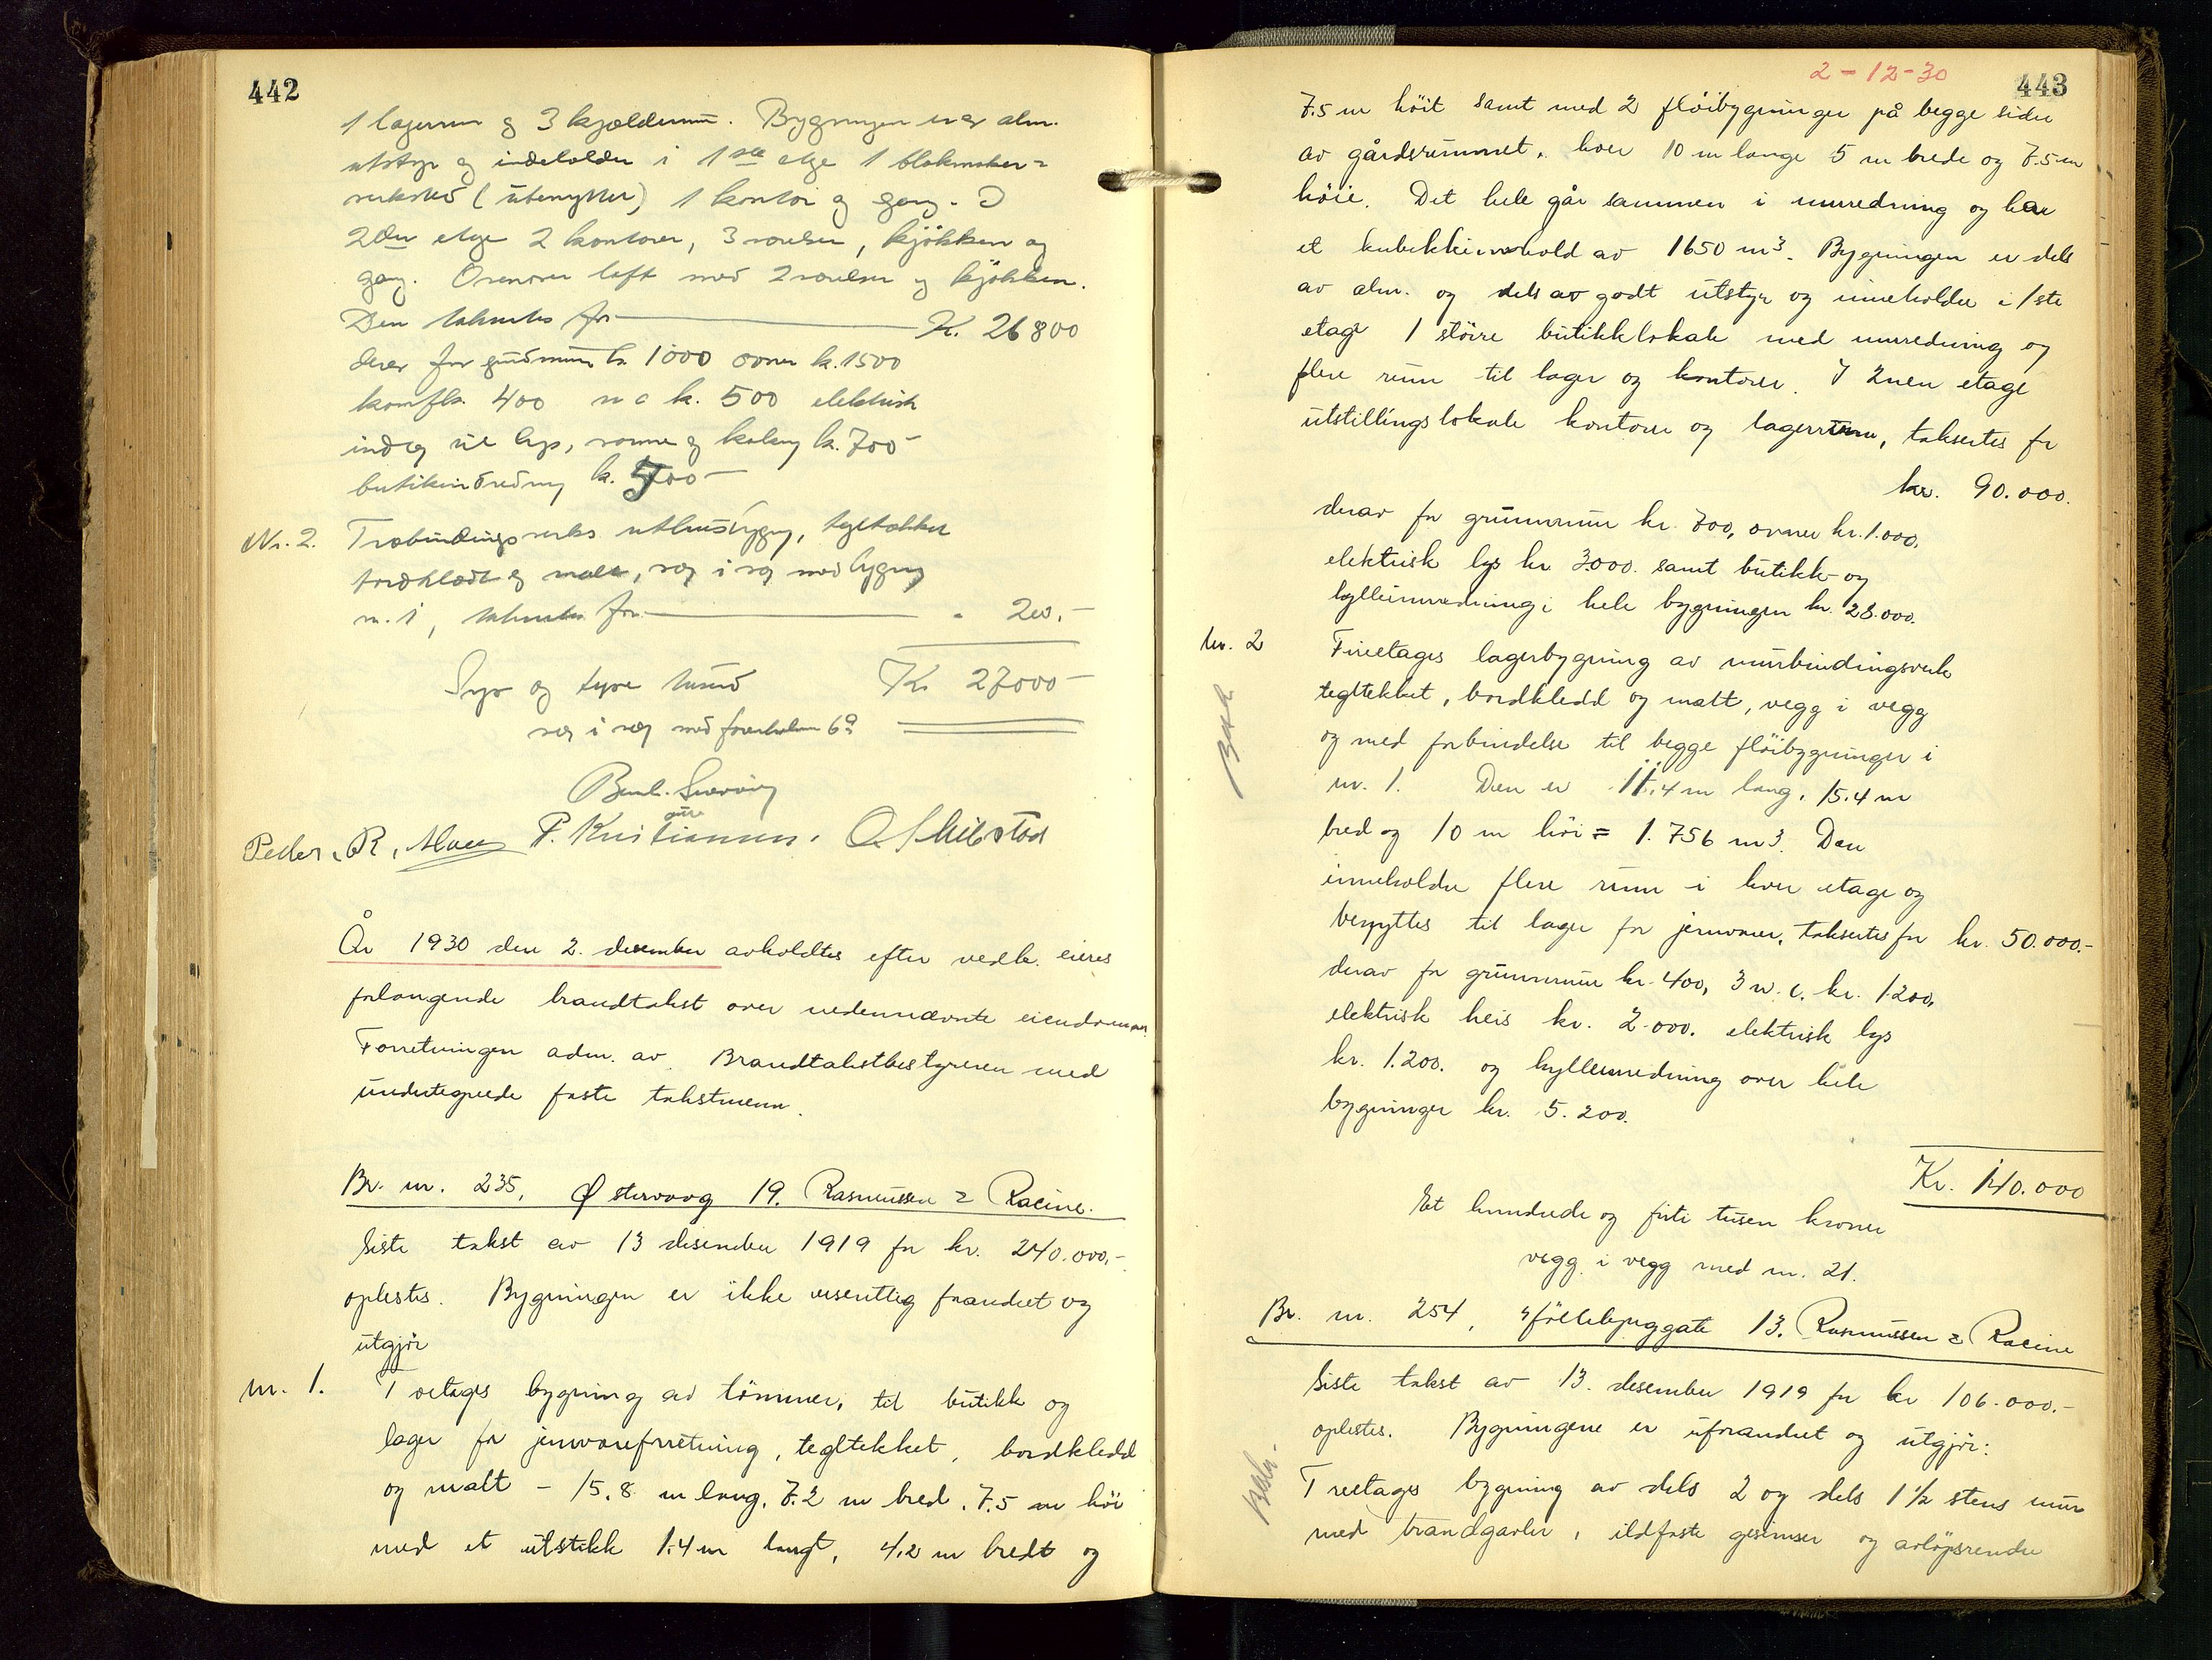 442
1 lagerrum og 3 kjælderrum. Bygningen er av alm.
utstyr og indeholder i 1ste etge 1 blokmaker=
verksted (ubenyttet) 1 kontor og gang. I
2den etge 2 kontorer, 3 værelser, kjökken og
gang. Ovenover loft med 2 værelser og kjökken.
Den takseres for K. 26800
derav for grundmur k. 1000 ovner k. 1500
komfk. 400 w c k. 500 elektrisk
indlæg til lys, varme og kokng k. 700-
butikindredning k. 500-
Nr. 2. Træbindingsverks uthusbygng, tegltækket
bordklædt og malt, væg i væg med bygng
nr. 1, takseres for " 200,-
Syv og tyve tusend Kr 27000-
væg i væg med 6a
Peder, R,
P. Kristiansen.
År 1930 den 2. desember avholdtes efter vedk. eieres
forlangende brandtakst over nedennævnte eiendommer
Forretningen adm. av Brandtakstbestyreren med
undertegnede faste takstmenn.
Br. nr. 235, Østervaag 19. Rasmussen & Racine.
Siste takst av 13 desember 1919 for kr. 240.000,-
oplestes. Bygningen er ikke vesentlig forandret og
utgjör
nr. 1. Toetages bygning av tömmer, til butikk og
lager for jernvareforretning, tegltekket, bordkledd
og malt - 15,8 m lang, 7.2 m bred, 7,5 m höi
med et utstikk 1,4 m langt, 4,2 m bredt og
2-12-30
443
7.5 m höit samt med 2 flöibygninger på begge sider
av gårdsrummet, hver 10 m lange 5 m brede og 7.5 m
höie. Det hele går sammen i innredning og har
et kubikkinnhold av 1650 m3. Bygningen er dels
av alm. og dels av godt utstyr og inneholder i 1ste
etage 1 större butikklokale med innredning og
flere rum til lager og kontorer. I 2nen etage
utstillingslokale kontorer og lagerrum, taksertes for
kr. 90.000.
derav for grunnmur kr. 700, ovner kr. 1.000.
elektrisk lys kr 3.000. samt butikk- og
hylleinnredning i hele bygningen kr. 28.000.
nr. 2 Fireetages lagerbygning av murbindingsverk
tegltekket, bordkledd og malt, vegg i vegg
og med forbindelse til begge flöibygninger i
nr. 1. Den er 11.4 m lang, 15.4 m
bred og 10 m höi = 1.756 m3. Den
inneholder flere rum i hver etage og
benyttes til lager for jernvarer, taksertes for kr. 50.000.-
derav for grunnmur kr. 400, 3 w.c. kr. 1.200,
elektrisk heis kr. 2.000. elektrisk lys
kr. 1.200. og hylleinnredning over hele
bygningen kr. 5.200.
Kr. 140.000
Et hundrede og firti tusen kroner
vegg i vegg med nr. 21.
Br. nr. 254, 13. Rasmussen & Racine
Siste takst av 13. desember 1919 for kr 106.000.-
oplestes. Bygningene er uforandret og utgjör:
Treetages bygning av dels 2 og dels 1 1/2 stens mur
med brandgavler, ildfaste gesimser og avlöpsrender